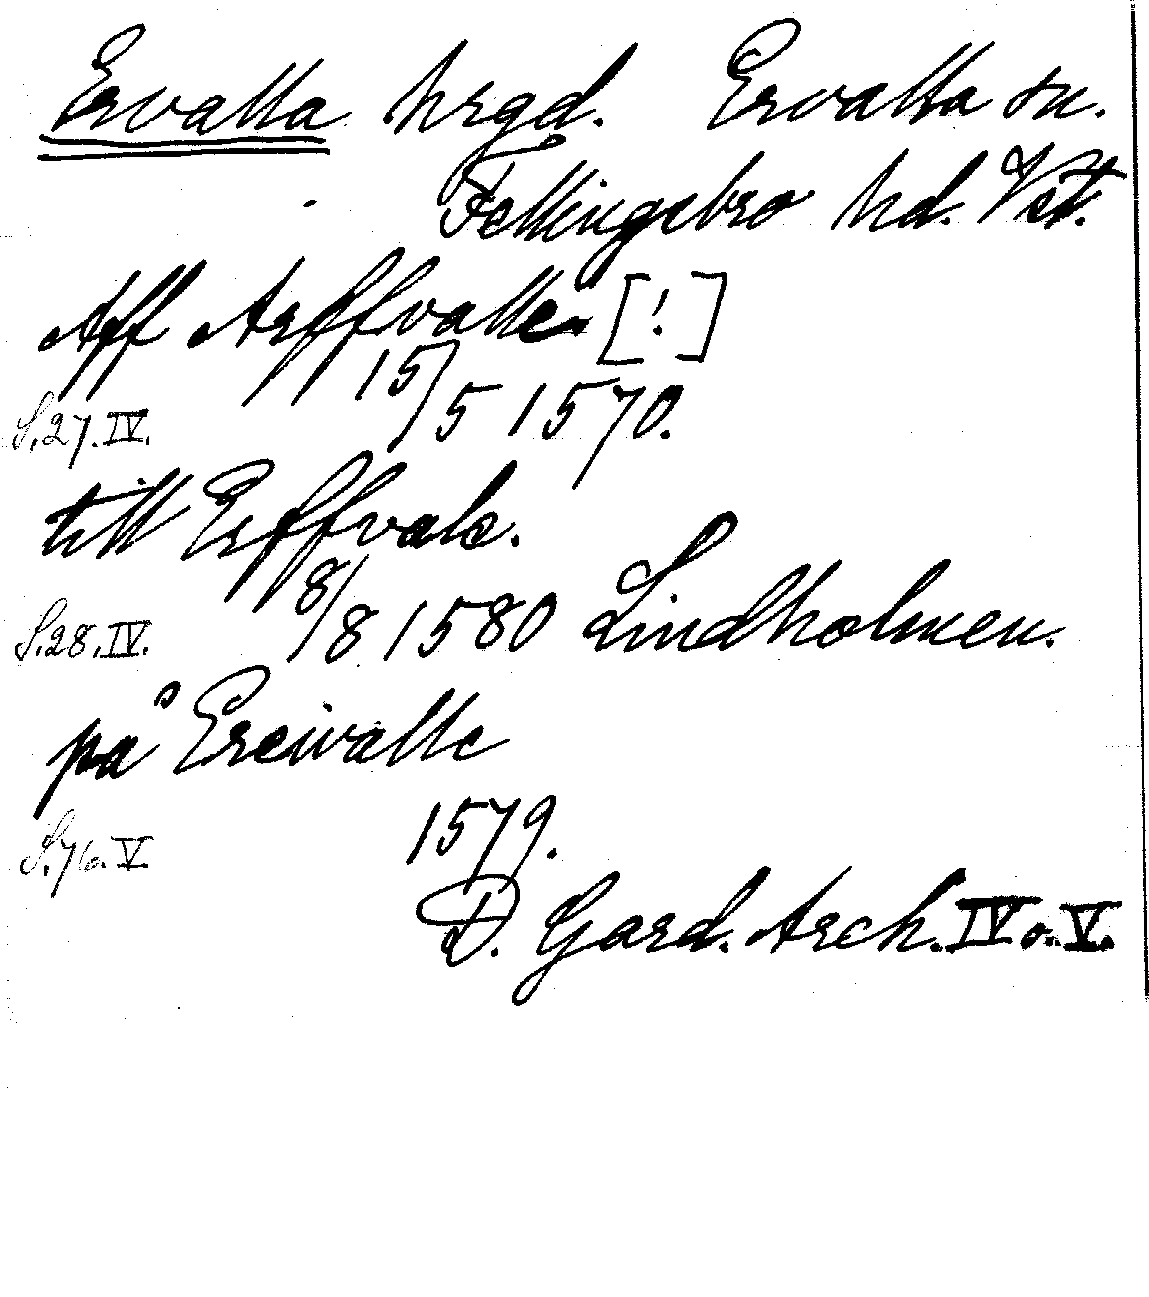 Ervalla hrgd. Ervalla sn.
Fellingsbro hd. Vst.
Aff Arffvalle [!]
15/5 1570.
S.27.IV.
till Erffvale.
8/8 1580 Lindholmen.
S.28.IV.
på Ereivalle
1579.
S.76.V
D. Gard. Arch. IV o. V.